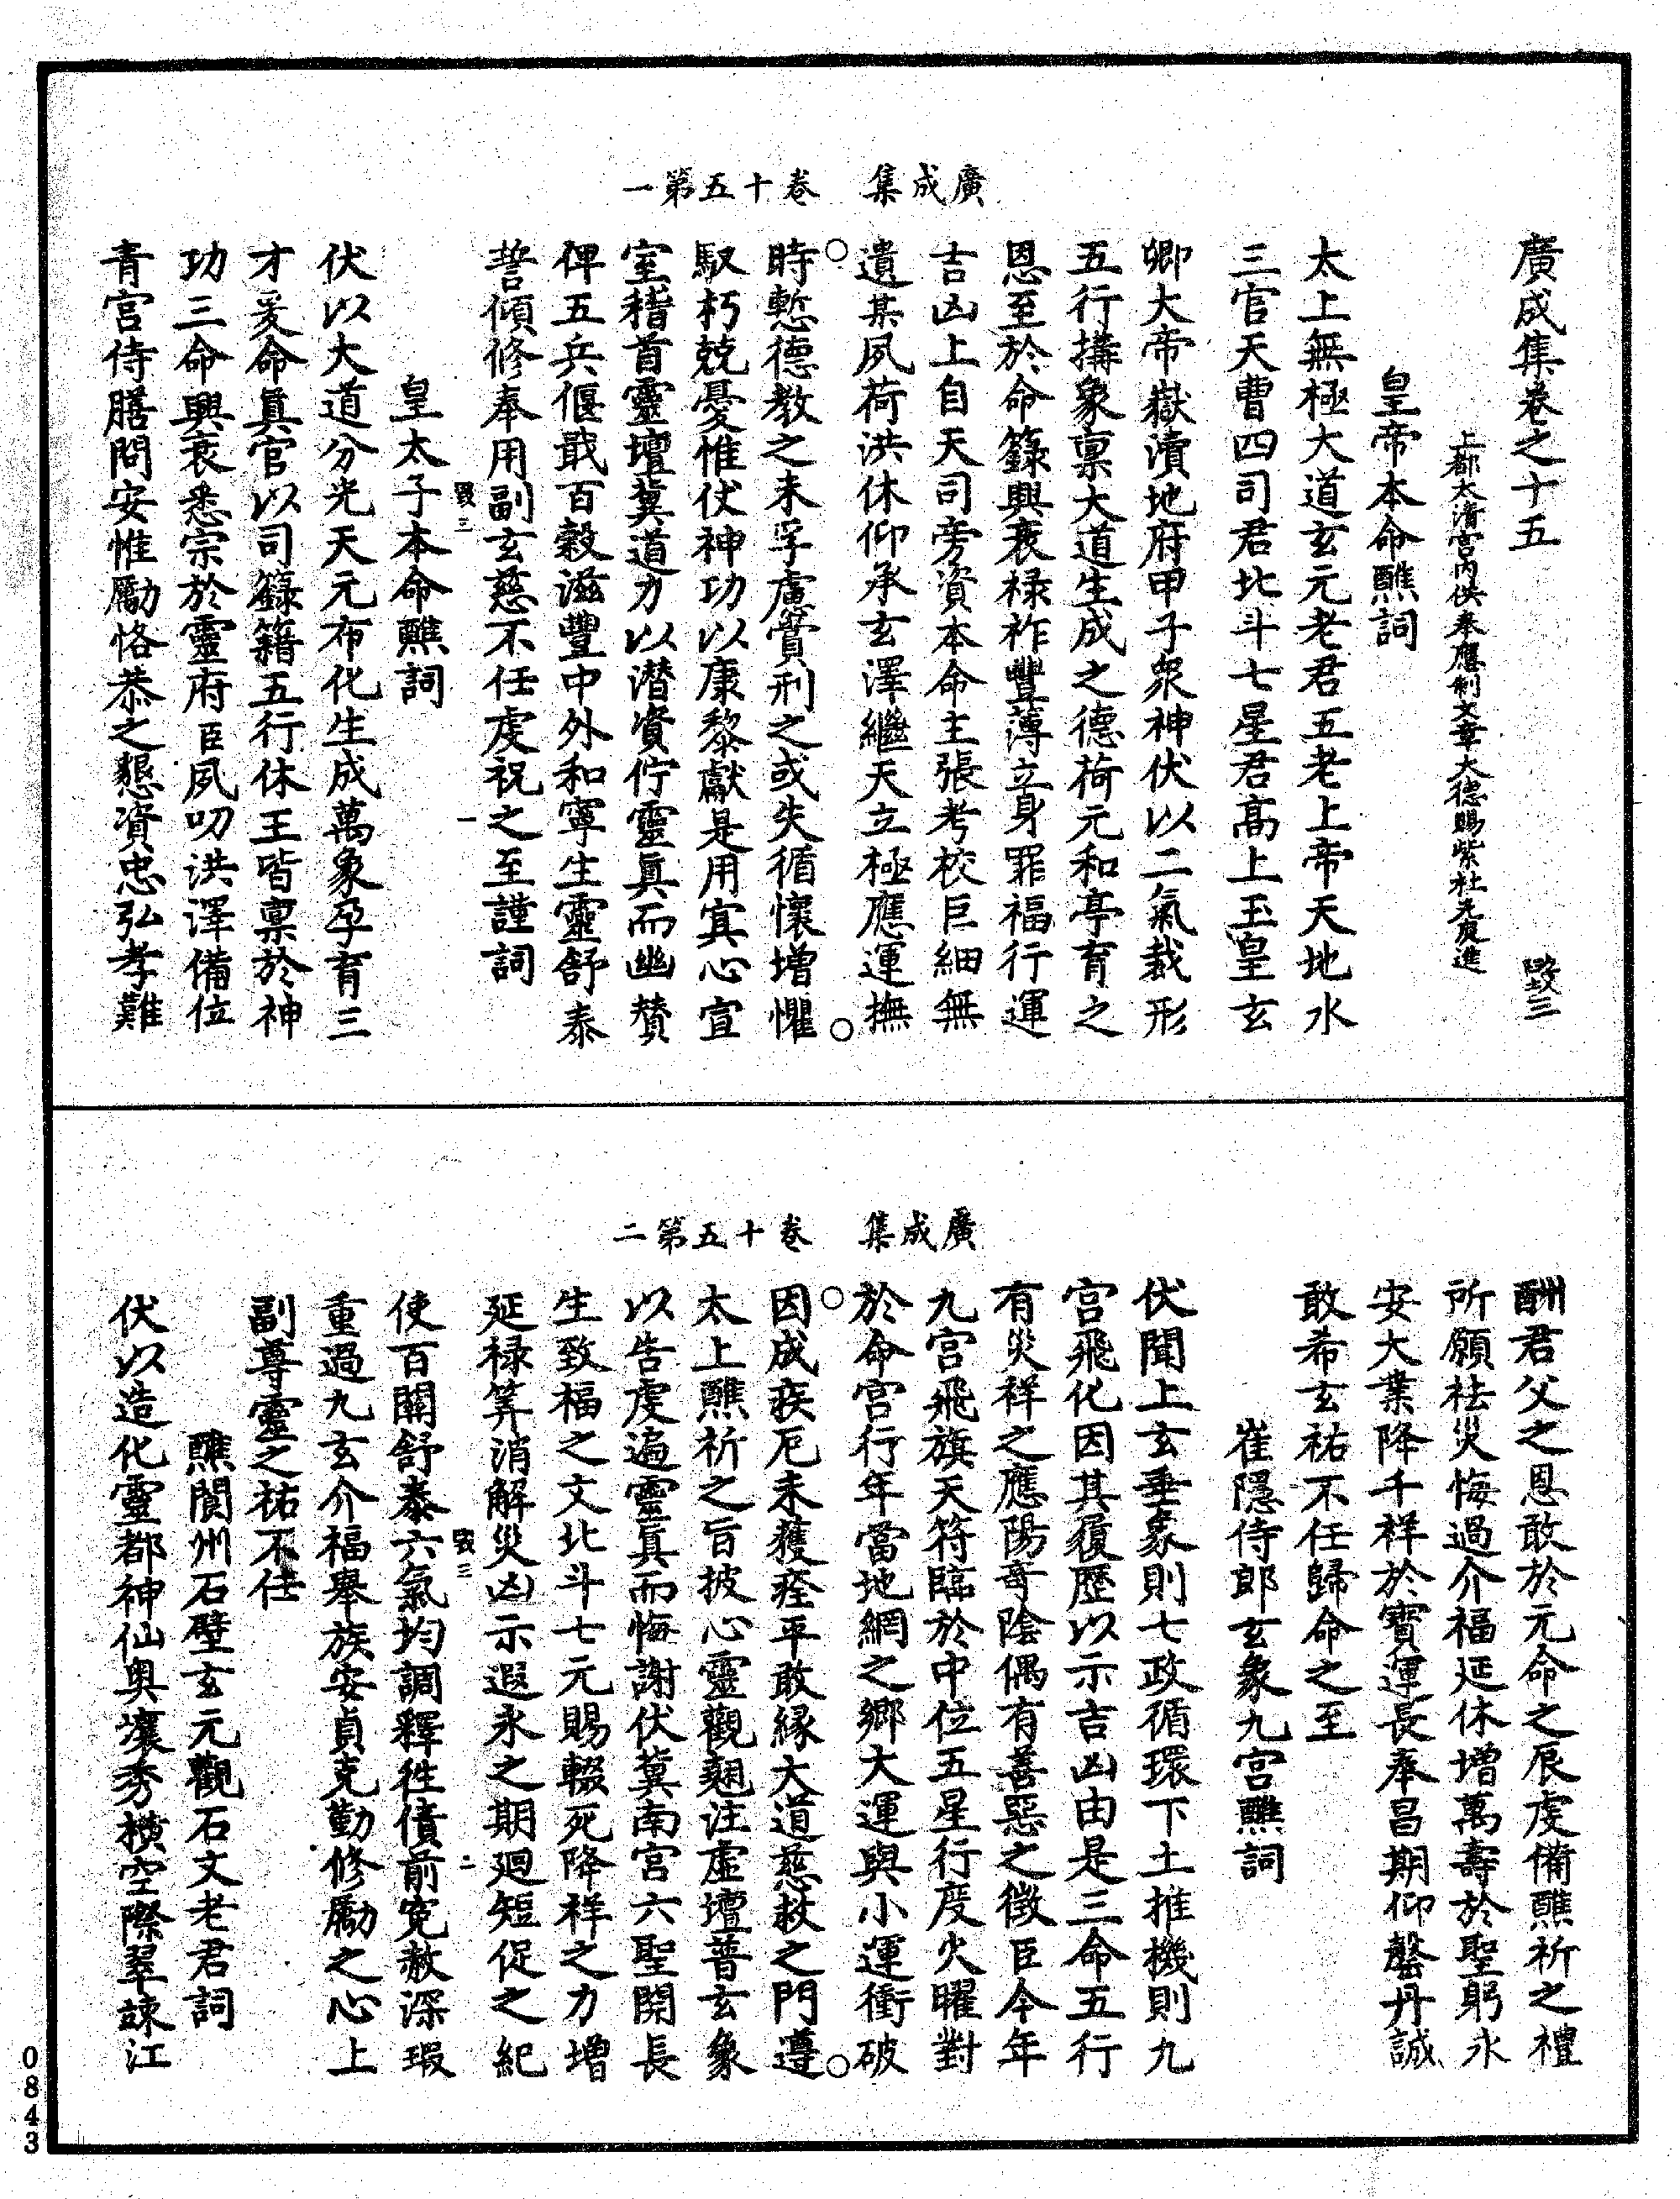 廣成集　卷十五第一
廣成集卷之十五　毀三
上都太清宮內供奉應制文章大德賜紫杜光庭進
皇帝本命醮詞
太上無極大道玄元老君五老上帝天地水
三官天曹四司君北斗七星君高上玉皇玄
卿大帝嶽瀆地府甲子衆神伏以二氣裁形
五行搆象禀大道生成之德荷元和亭育之
恩至於命籙興衰禄祚豐薄立身罪福行運
吉凶上自天司旁資本命主張考校巨細無
遺某夙荷洪休仰承玄澤繼天立極應運撫
時慙德教之未孚慮賞刑之或失循懷增懼
馭朽兢憂惟伏神功以康黎獻是用寘心宣
室稽首靈壇冀道力以潜資佇靈眞而幽贊
俾五兵偃戢百穀滋豐中外和寧生靈舒泰
誓傾修奉用副玄慈不任虔祝之至謹詞
毀三　一
皇太子本命醮詞
伏以大道分光天元布化生成萬象孕育三
才爰命眞官以司籙籍五行休王皆禀於神
功三命興衰悉宗於靈府臣夙叨洪澤備位
青宮侍膳問安惟勵恪恭之懇資忠弘孝難
廣成集　卷十五第二
酬君父之恩敢於元命之辰虔備醮祈之禮
所願袪災悔過介福延休增萬壽於聖躬永
安大業降千祥於寶運長奉昌期仰罄丹誠
敢希玄祐不任歸命之至
崔隱侍郎玄象九宮醮詞
伏聞上玄垂象則七政循環下土推機則九
宮飛化因其履歷以示吉凶由是三命五行
有災祥之應陽奇陰偶有善惡之徵臣今年
九宮飛旗天符臨於中位五星行度火曜對
於命宮行年當地網之鄉大運與小運衝破
因成疾厄未獲痊平敢緣大道慈救之門遵
太上醮祈之旨披心靈觀翹注虛壇普玄象
以告虔遍靈眞而悔謝伏冀南宮六聖開長
生致福之文北斗七元賜輟死降祥之力增
延禄筭消解災凶示遐永之期廻短促之紀
毀三　二
使百關舒泰六氣均調釋徃債前寃赦深瑕
重過九玄介福舉族安貞克勤修勵之心上
副尊靈之祐不任
醮閬州石壁玄元觀石文老君詞
伏以造化靈都神仙奧壤秀横空際翠竦江
0843